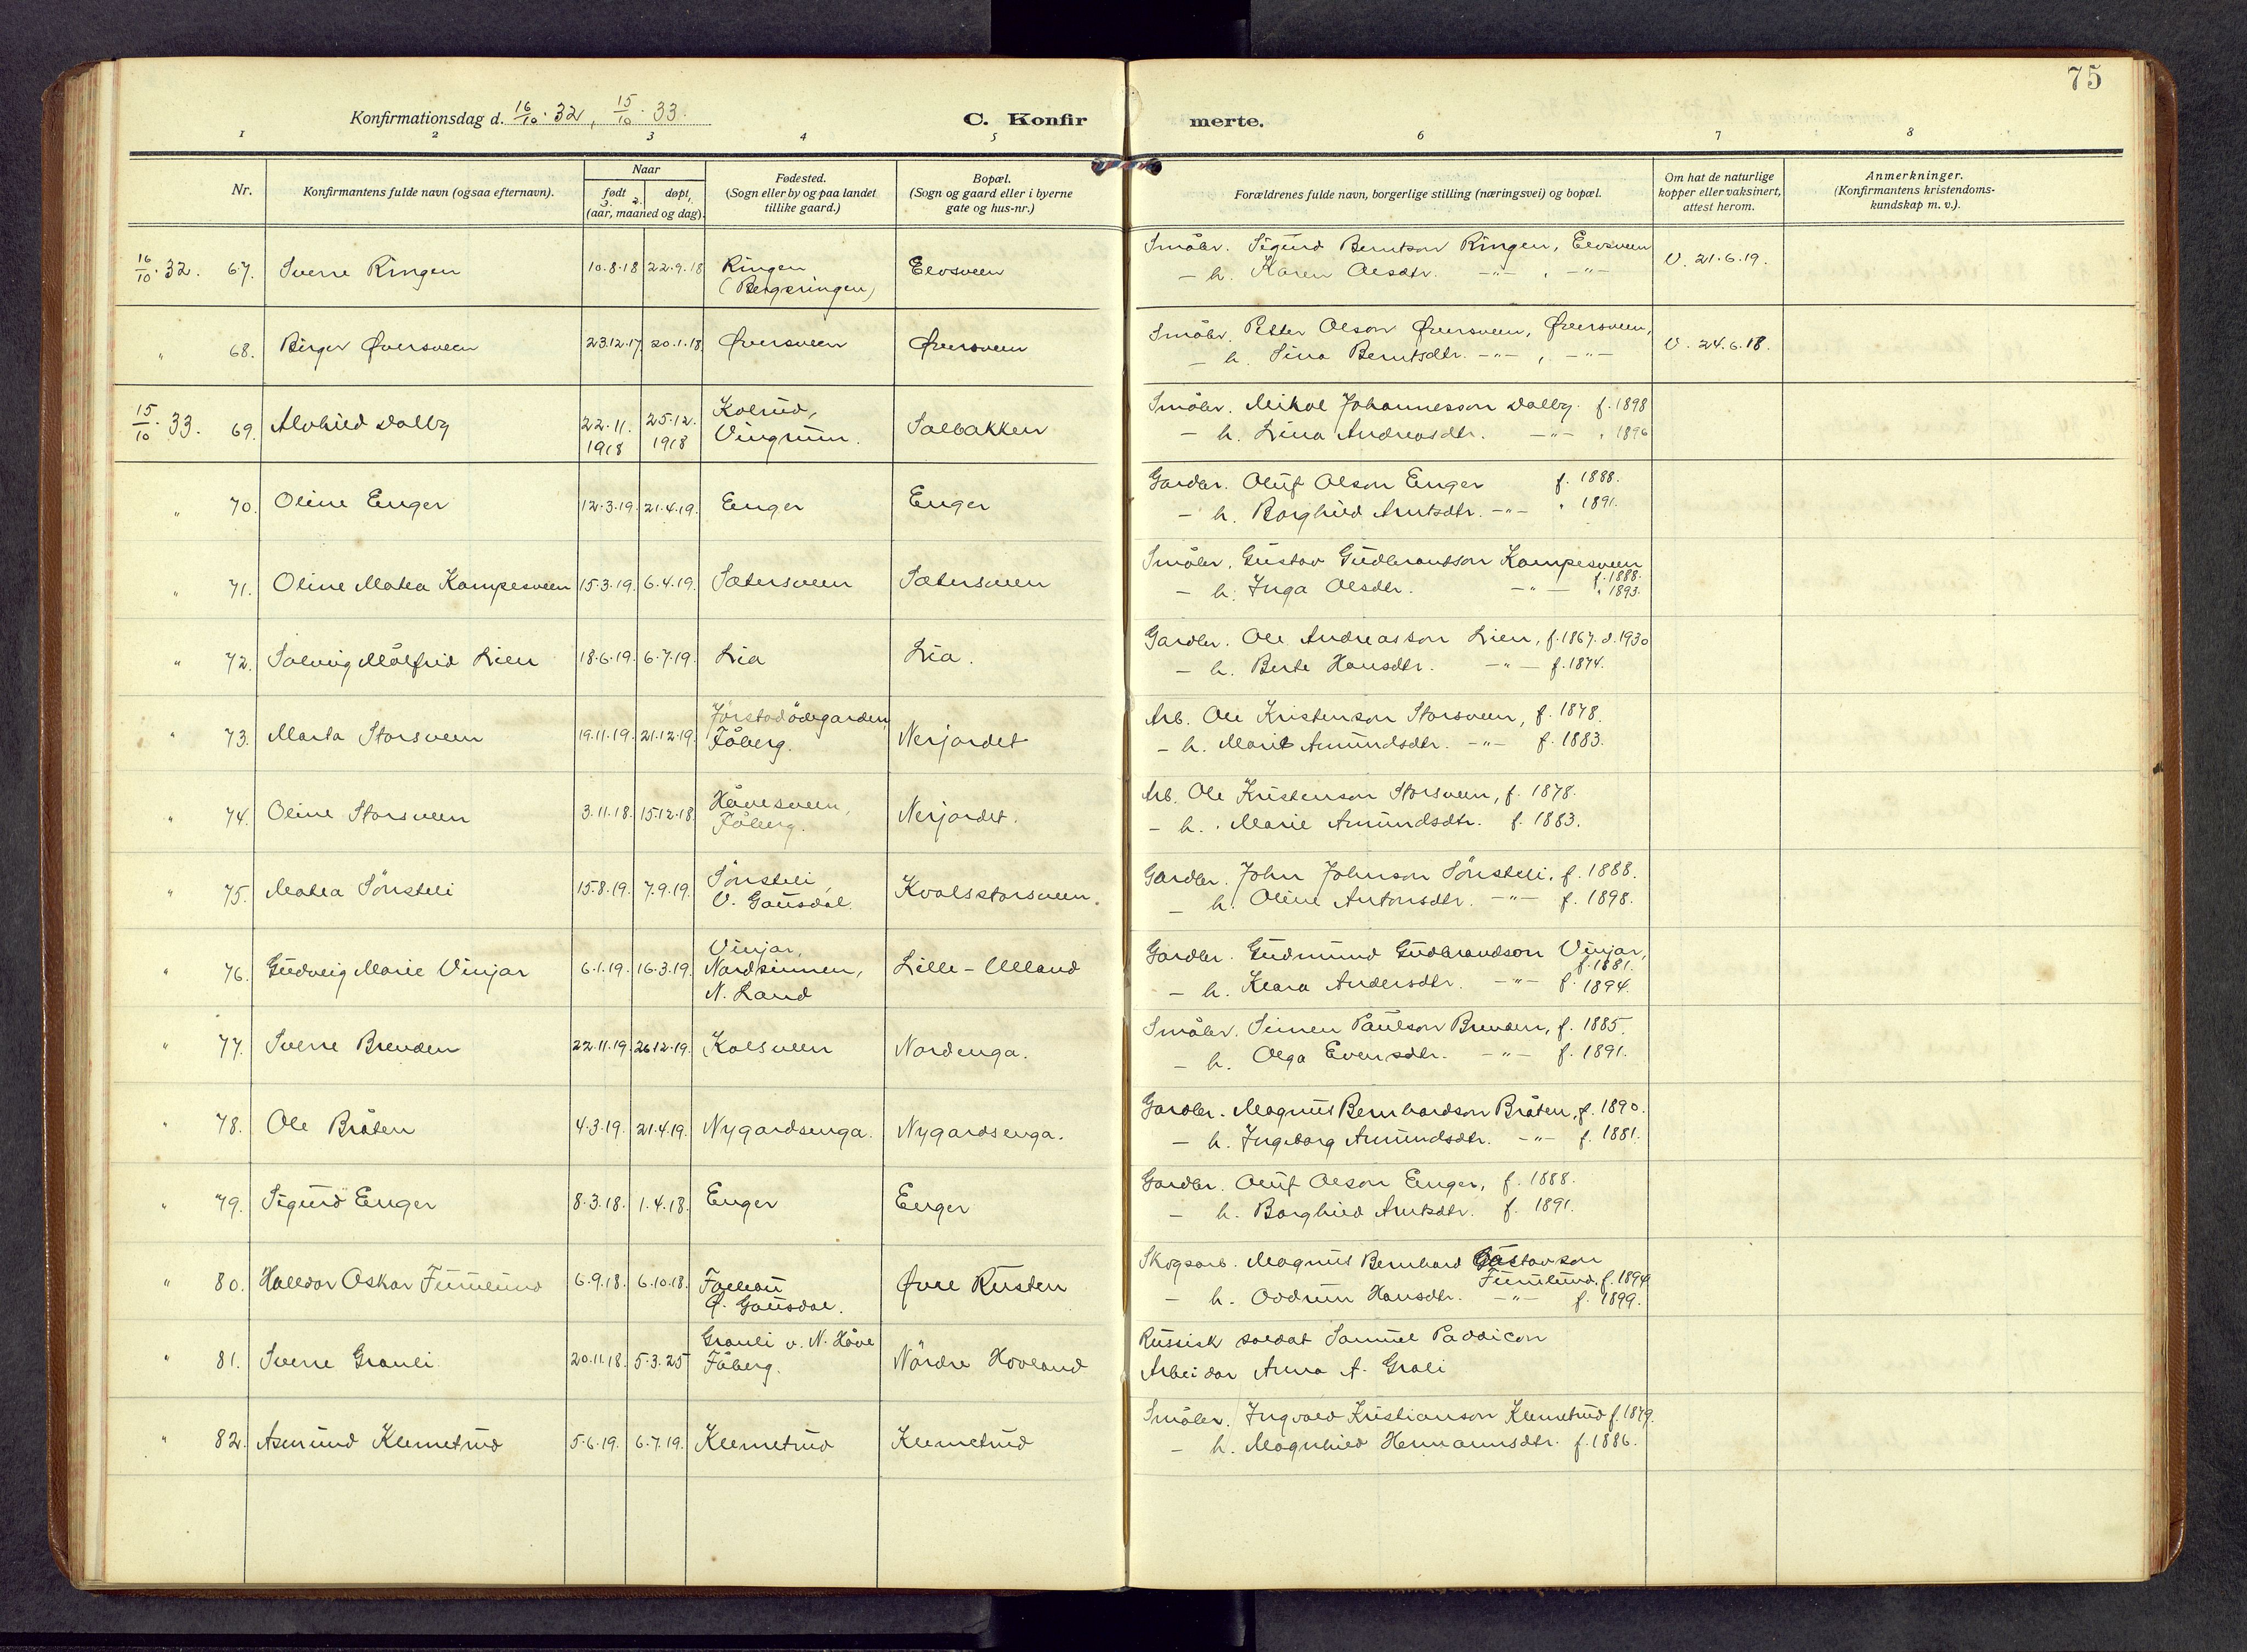 75
Konfirmationsdag d. 16/10. 32, 15/10. 33.
C. Konfirmerte.
1 2 3 4 5 6 7 8
Nr.
Konfirmantens fulde navn (ogsaa efternavn).
Naar
født døpt,
(aar, maaned og dag).
Fødested.
(Sogn eller by og paa landet
tillike gaard.)
Bopæl.
(Sogn og gaard eller i byerne
gate og hus-nr.)
Forældrenes fulde navn, borgerlige stilling (næringsvei) og bopæl.
Om hat de naturlige
kopper eller vaksinert,
attest herom.
Anmerkninger.
(Konfirmantens kristendoms-
kundskap m. v.).
16/10. 32. 67. Sverre Ringen 10.8.18 22.9.18 Ringen (Bergsringen) Elvsveen
Småbr. Sigurd Berntson Ringen, Elvsveen
- h. Karen Olsdtr. -"- , -"-
V. 21.6.19.
" 68. Birger Øversveen 23.12.17 20.1.18 Øversveen Øversveen
Småbr. Petter Olson Øversveen, Øversveen,
- h. Lina Berntsdtr. -"- , -"-
V. 24.6.18.
15/10. 33. 69. Alvhild Dalby 22.11. 1918 25.12. 1918 Kolrud, Vingrum. Solbakken
Småbr. Mikal Johannesson Dalby. f. 1898
- h. Lina Andreasdtr. -"- " 1896
" 70. Oline Enger 12.3.19. 21.4.19. Enger Enger
Gardbr. Oluf Olson Enger f. 1888.
- h. Borghild Arntsdtr. -"- " 1891.
" 71. Oline Matea Kampesveen 15.3.19. 6.4.19. Sætersveen Sætersveen
Småbr. Gustav Gudbrandson Kampesveen
f. 1888.
- h. Inga Olsdtr. -"- " 1893.
" 72. Solveig Målfrid Lien 18.6.19. 6.7.19. Lia Lia.
Gardbr. Ole Andreasson Lien, f. 1867. d. 1930
- h. Berte Hansdtr. -"- f. 1874.
" 73. Marta Storsveen 19.11.19. 21.12.19. Jörstadödegarden, Fåberg. Nerjordet
Arb. Ole Kristenson Storsveen, f. 1878.
- h. Marie Amundsdtr. -"- f. 1883.
" 74. Oline Storsveen 3.11.18. 15.12.18. Håvesveen, Fåberg. Nerjordet.
Arb. Ole Kristenson Storsveen, f. 1878.
- h. Marie Amundsdtr. f. 1883.
" 75. Matea Sönsteli 15.8.19. 7.9.19. Sönsteli, V. Gausdal. Kvalsstorsveen.
Gardbr. John Johnson Sönsteli, f. 1888.
- h. Oline Antonsdtr. -"- f. 1898.
" 76. Gudveig Marie Vinjar 6.1.19. 16.3.19. Vinjar, Nordsinnen, N. Land Lille-Ulland
Gardbr. Gudmund Gudbrandson Vinjar,
f. 1881.
- h. Klara Andersdtr. -"- f. 1894.
" 77. Sverre Brenden 22.11.19. 26.12.19. Kolsveen Nordenga.
Småbr. Simen Paulson Brenden, f. 1885.
- h. Olga Evensdtr. -"- f. 1891.
" 78. Ole Bråten 4.3.19. 21.4.19. Nygardsenga. Nygardsenga.
Gardbr. Magnus Bernhardson Bråten, f. 1890.
- h. Ingeborg Amundsdtr. -"- f. 1881.
" 79. Sigurd Enger 8.3.18. 1.4.18. Enger Enger
Gardbr. Oluf Olson Enger, f. 1888.
- h. Borghild Arntsdtr. f. 1891.
" 80. Halldor Oskar Furulund 6.9.18. 6.10.18. Ø. Gausdal. Øvre Rusten
Skogsarb. Magnus Bernhard Gustavson
Furulund, f. 1894
- h. Oddrun Hansdtr. -"- f. 1899.
" 81. Sverre Granli 20.11.18. 5.3.25 Granli v. N. Håve Fåberg. Nördre Hovland
Russisk soldat Samuel Paddicon
Arbeidar Anna A. Grali
" 82. Asmund Klemetrud 5.6.19. 6.7.19. Klemetrud Klemetrud
Småbr. Ingvald Kristianson Klemetrud f. 1879.
- h. Magnhild Hermannsdtr. f. 1886.